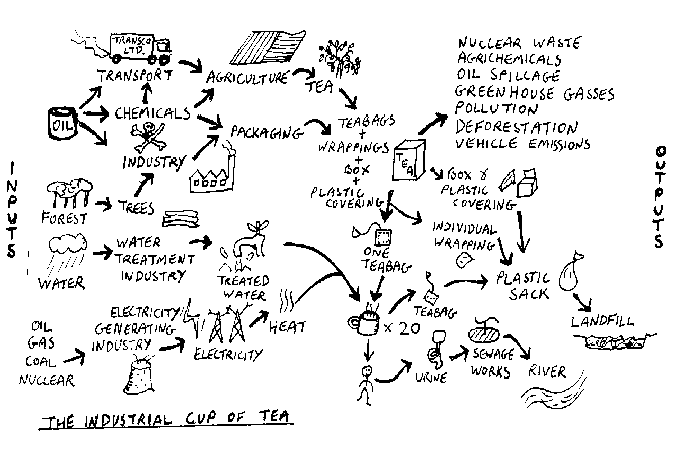 TRANSCO
LTD.
TRANSPORT
AGRICULTURE
TEA
OIL
CHEMICALS
INDUSTRY
PACKAGING
TEABAGS
+
WRAPPINGS
+
BOX
+
PLASTIC
COVERING
TEA
NUCLEAR WASTE
AGRICHEMICALS
OIL SPILLAGE
GREENHOUSE GASSES
POLLUTION
DEFORESTATION
VEHICLE EMISSIONS
INPUTS
OUTPUTS
FOREST
TREES
BOX &
PLASTIC
COVERING
INDIVIDUAL
WRAPPING
ONE
TEABAG
WATER
WATER
TREATMENT
INDUSTRY
TREATED
WATER
PLASTIC
SACK
TEABAG
LANDFILL
OIL
GAS
COAL
NUCLEAR
ELECTRICITY
GENERATING
INDUSTRY
ELECTRICITY
HEAT
x 20
URINE
SEWAGE
WORKS
RIVER
THE INDUSTRIAL CUP OF TEA